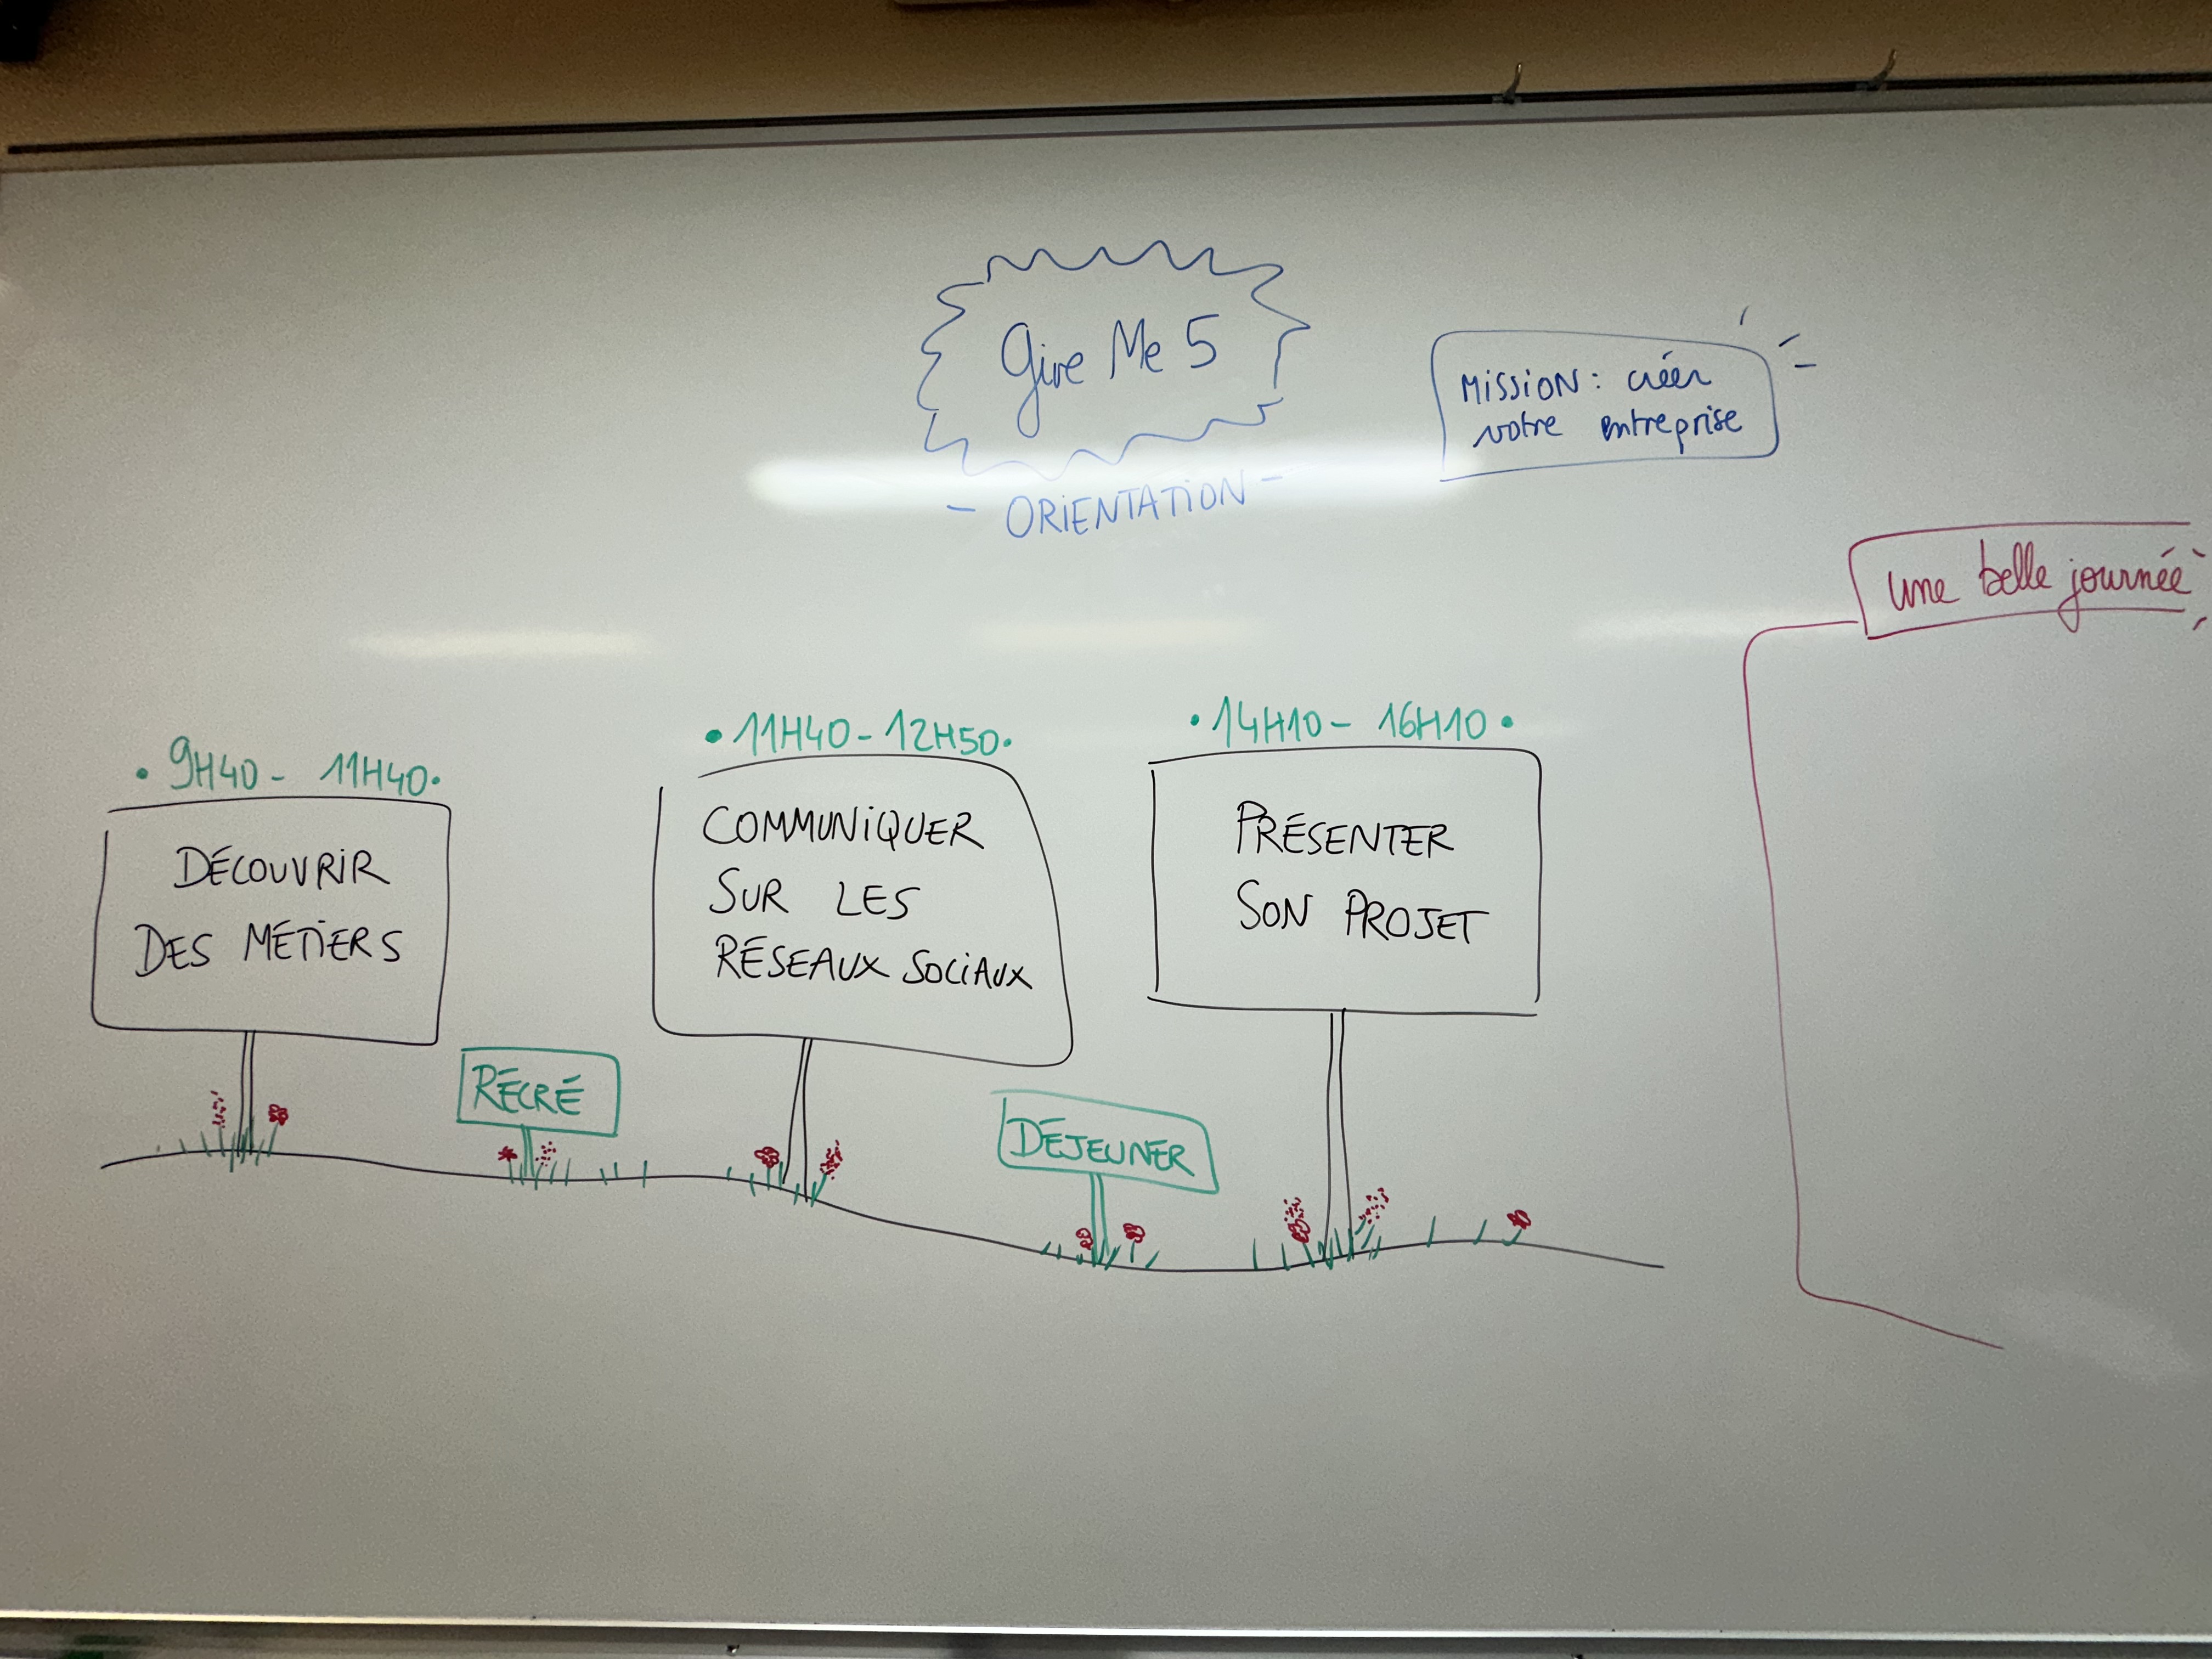 Give Me 5
- ORIENTATION -
MISSION : créer
votre entreprise
une belle journée
• 9H40 - 11H40 •
DÉCOUVRIR
DES MÉTIERS
RÉCRÉ
• 11H40 - 12H50 •
COMMUNIQUER
SUR LES
RÉSEAUX SOCIAUX
DÉJEUNER
• 14H10 - 16H10 •
PRÉSENTER
SON PROJET